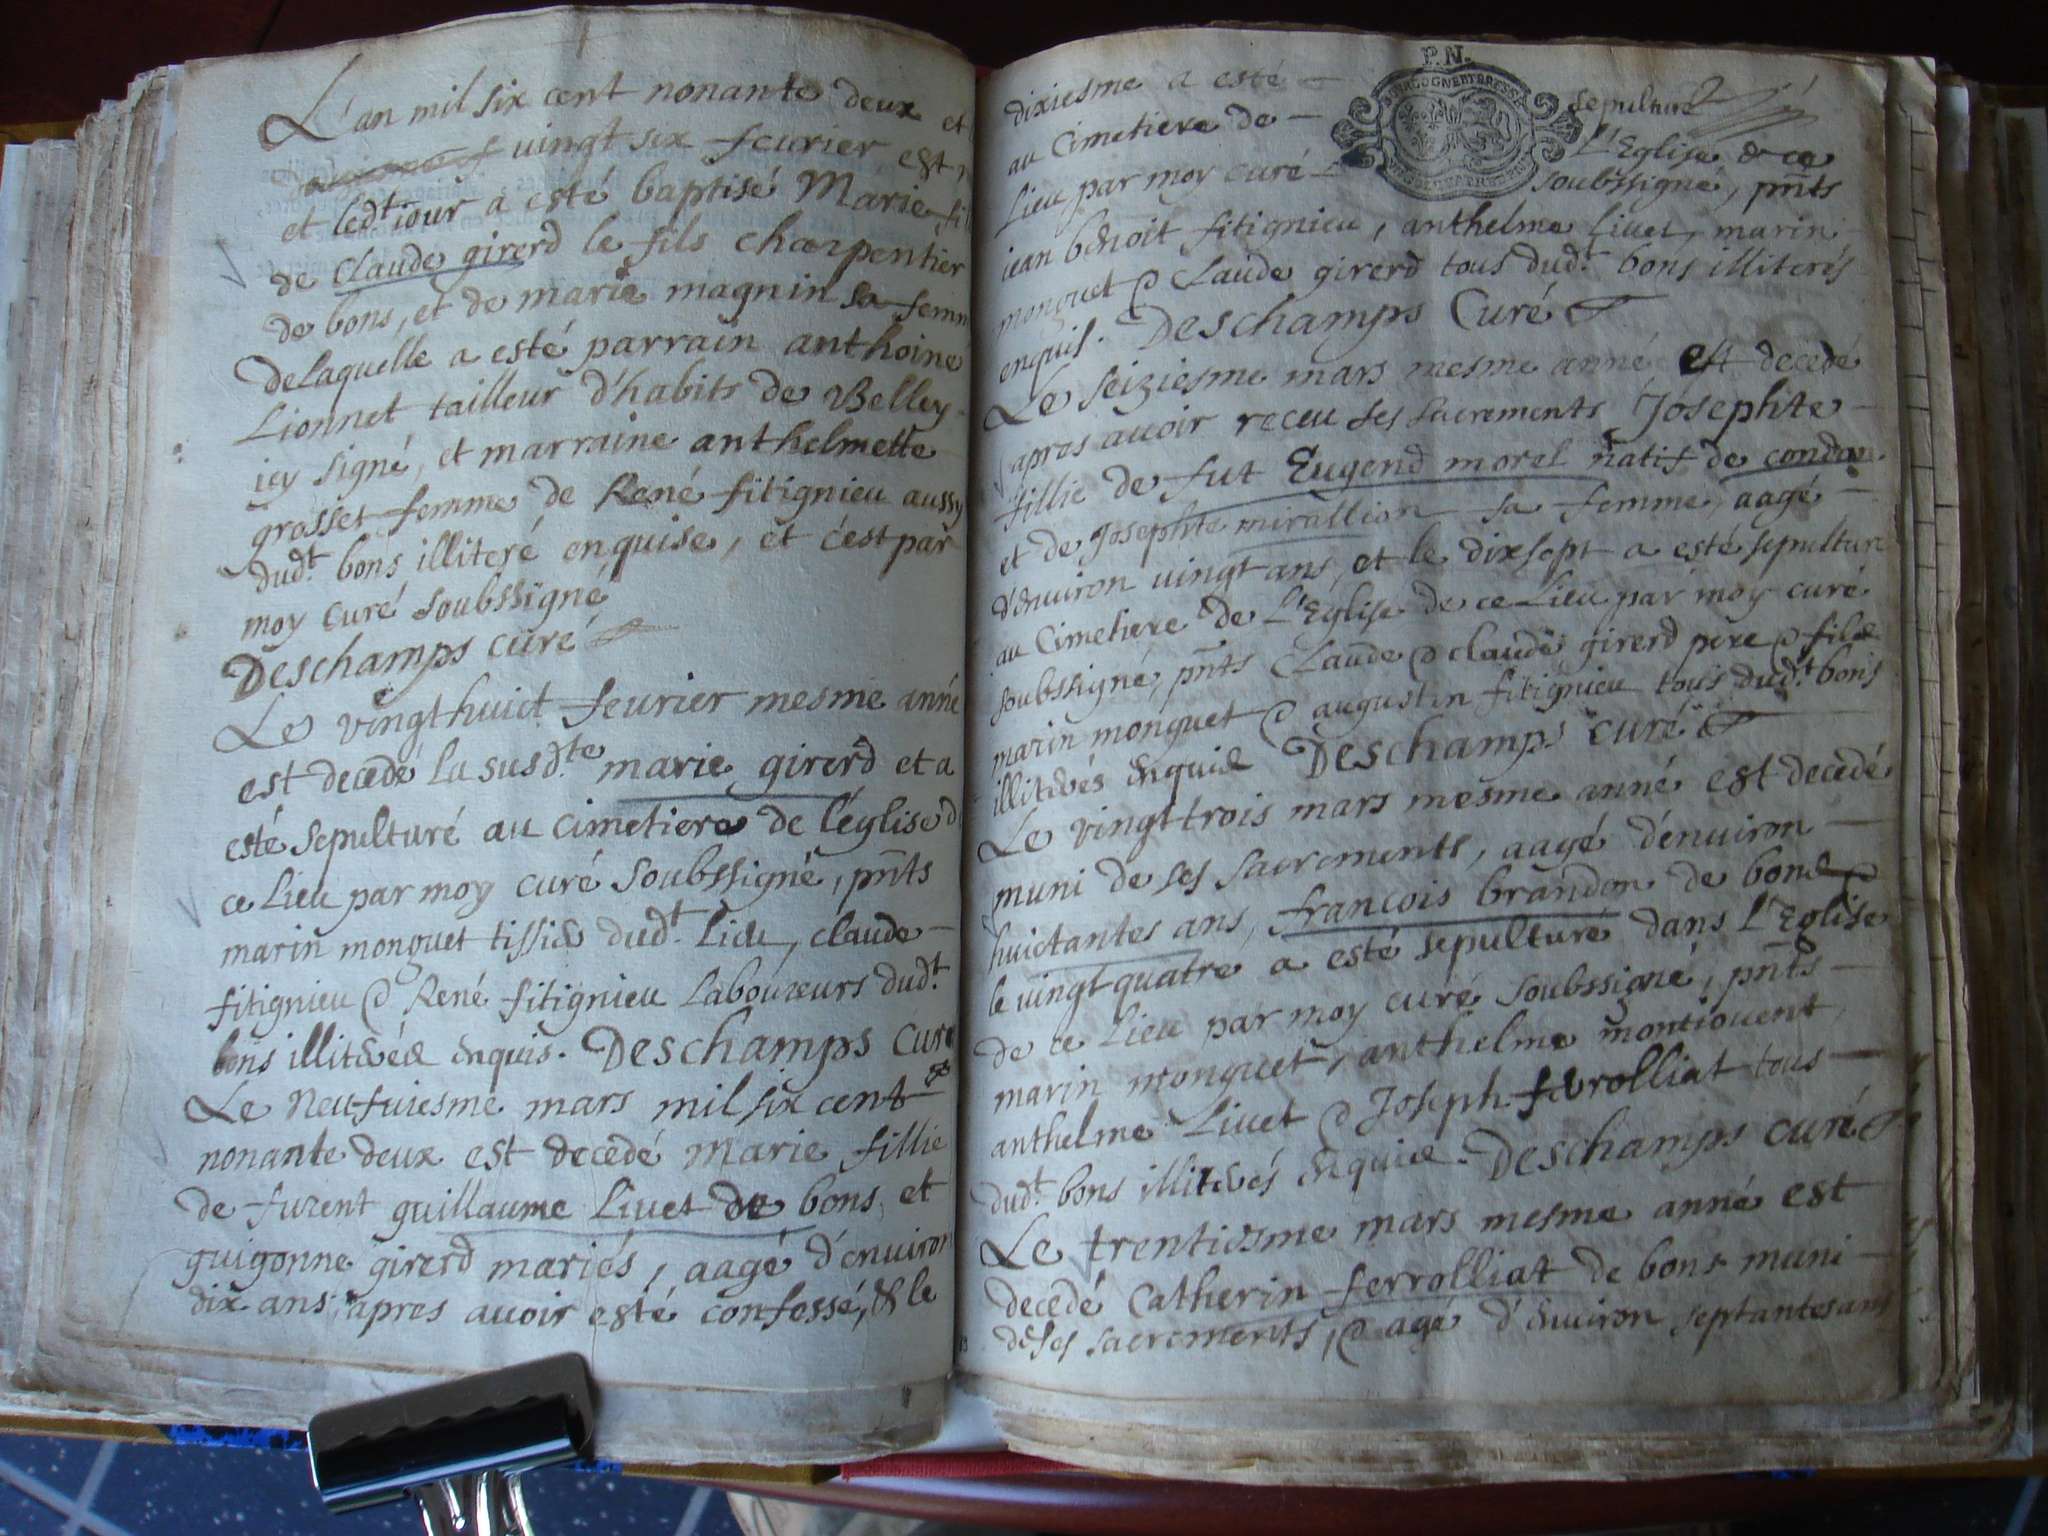 L'an mil six cent nonante deux et
vingt six feurier est
et led.t iour a esté baptisé Marie
de Claude girerd le fils charpentier
de bons, et de marie magnin sa femm
delaquelle a esté parrain anthoine
Lionnet tailleur d'habits de Belley
icy signé, et marraine anthelmette
grosset femme de René fitignieu aussy
dud.t bons illiteré enquise, et c'est par
moy curé soubssigné
Deschamps curé
Le vingthuict feurier mesme anné
est decedé la susd.te marie girerd et a
esté sepulturé au cimetiere de l'église d
ce Lieu par moy curé soubssigné, pnts
marin monguet tissie dud.t Lieu, claude
fitignieu & René fitignieu Laboureurs dud.t
bons illiterés enquis. Deschamps Curé
Le neufuiesme mars mil six cent
nonante deux est decedé Marie fillie
de furent guillaume Liuet de bons, et
guigonne girerd mariés, aagé d'enuiron
dix ans, apres auoir esté confessé, & le
P.N.
dixiesme a esté sepulturé
au Cimetiere de L'Eglise de ce
Lieu par moy curé soubssigné, pnts
iean benoit fitignieu, anthelme Liuet, marin
monguet & Claude girerd tous dud.t bons illiterés
enquis. Deschamps Curé
Le seiziesme mars mesme anné est decedé
apres auoir receu ses sacrements Josephte
fillie de fut Eugend morel natif de conda
et de Josephte mirallion sa femme, aagé
d'enuiron uingt ans, et le dixsept a esté sepulturé
au Cimetiere de L'Eglise de ce Lieu par moy curé
soubssigné, pnts Claude & claude girerd pere & fils
marin monguet & augustin fitignieu tous dud.t bons
illiterés enquis Deschamps curé
Le vingt trois mars mesme anné est decedé
muni de ses sacrements, aagé d'enuiron
huictantes ans, francois brandon de bons &
le uingt quatre a esté sepulturé dans L'Eglise
de ce Lieu par moy curé soubssigné, pnts
marin monguet, anthelme montiouent,
anthelme Liuet & Joseph ferrolliat tous
dud.t bons illiterés enquis. Deschamps curé
Le trentiesme mars mesme anné est
decedé Catherin ferrolliat de bons muni
de ses sacrements, & agé d'enuiron septantes ans